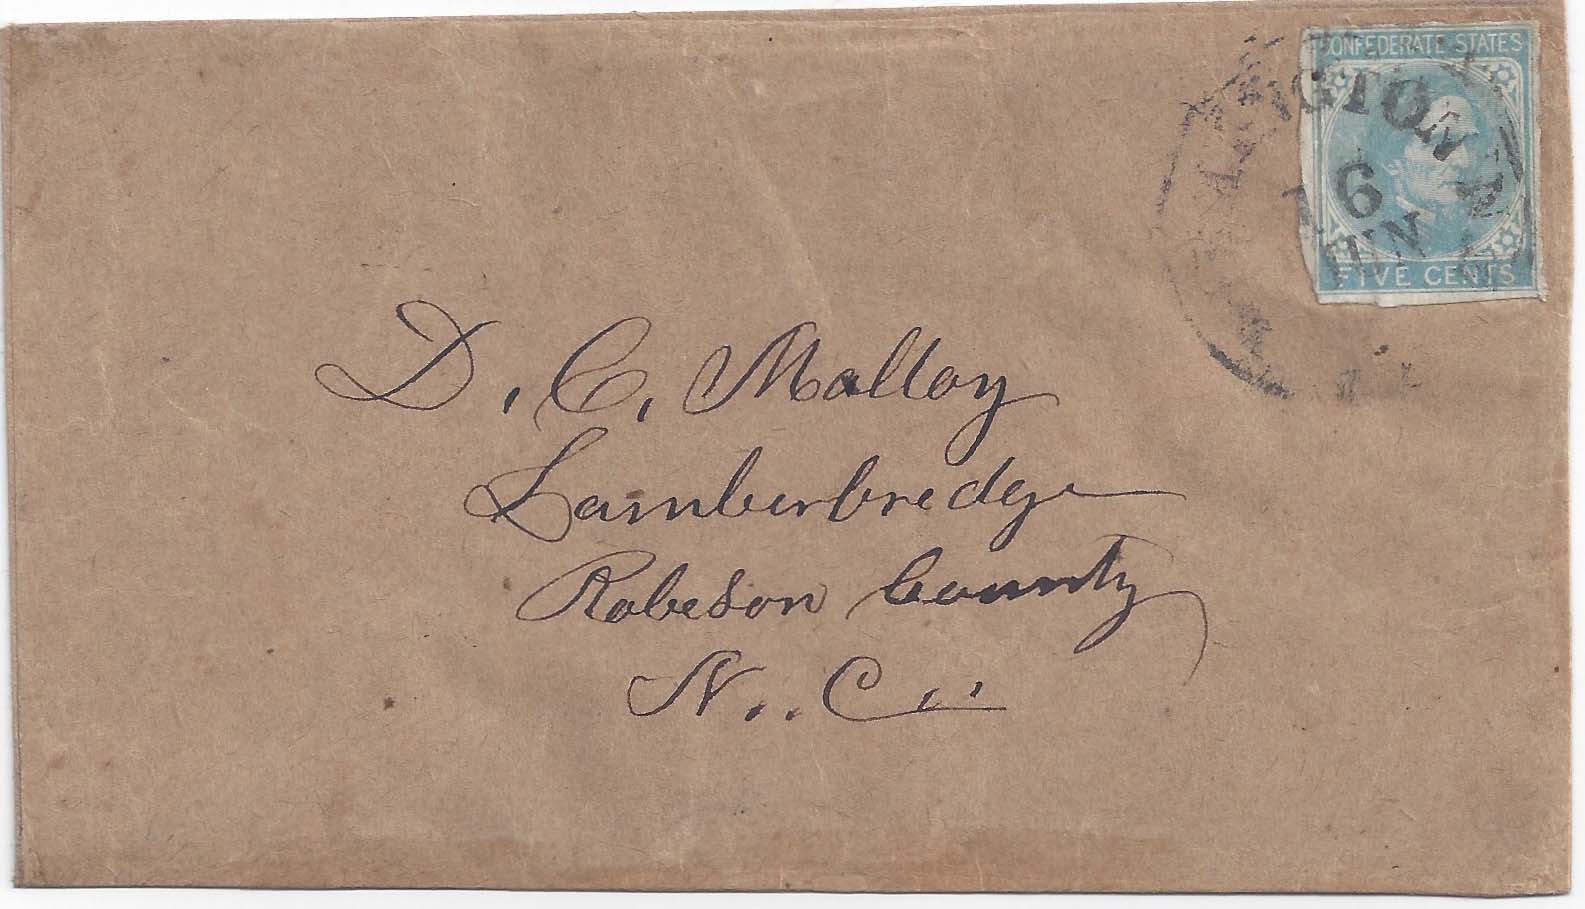 CONFEDERATE STATES
6
JUN
FIVE CENTS
D. C. Malloy
Lamberbredge
Robeson County
N. C.